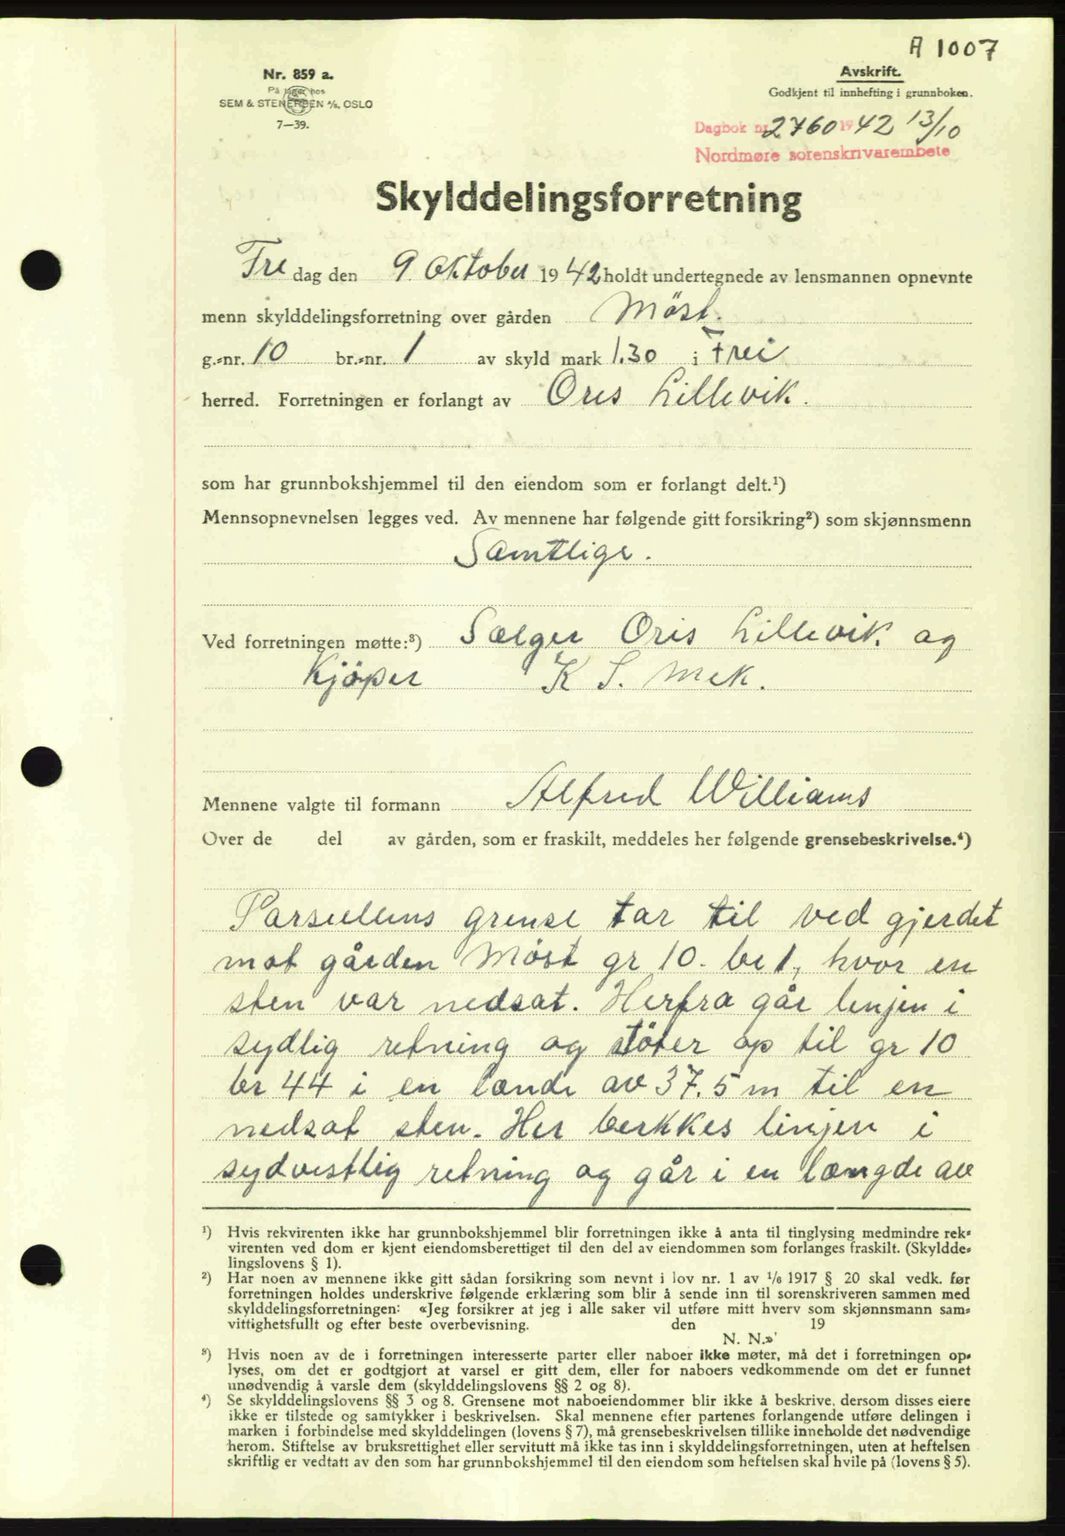 A 1007
Nr. 859 a.
På lager hos
SEM & STENERSEN A/S, OSLO
7—39.
Avskrift.
Godkjent til innhefting i grunnboken.
Dagbok nr 2760 1942 13/10
Nordmøre sorenskrivarembete
Skylddelingsforretning
Fre dag den 9. Oktober 1942 holdt undertegnede av lensmannen opnevnte
menn skylddelingsforretning over gården Möst.
g.-nr. 10 br.-nr. 1 av skyld mark 1.30 i Frei
herred. Forretningen er forlangt av Oris Lillevik.
som har grunnbokshjemmel til den eiendom som er forlangt delt.¹)
Mennsopnevnelsen legges ved. Av mennene har følgende gitt forsikring²) som skjønnsmenn
Samtlige.
Ved forretningen møtte:³) Sælger Oris Lillevik og
Kjöper K S. Mek.
Mennene valgte til formann Alfred Williams
Over de del av gården, som er fraskilt, meddeles her følgende grensebeskrivelse.⁴)
Parsellens grense tar til ved gjerdet
mot gården Möst gr 10. br 1, hvor en
sten var nedsat. Herfra går linjen i
sydlig retning og stöter op til gr 10
br 44 i en lænde av 37.5 m til en
nedsat sten. Her brekkes linjen i
sydvestlig retning og går i en længde av
¹) Hvis rekvirenten ikke har grunnbokshjemmel blir forretningen ikke å anta til tinglysing medmindre rek-
virenten ved dom er kjent eiendomsberettiget til den del av eiendommen som forlanges fraskilt. (Skyldde-
lingslovens § 1).
²) Har noen av mennene ikke gitt sådan forsikring som nevnt i lov nr. 1 av 1/6 1917 § 20 skal vedk. før
forretningen holdes underskrive følgende erklæring som blir å sende inn til sorenskriveren sammen med
skylddelingsforretningen: «Jeg forsikrer at jeg i alle saker vil utføre mitt hverv som skjønnsmann sam-
vittighetsfullt og efter beste overbevisning. den 19
N. N.»'
³) Hvis noen av de i forretningen interesserte parter eller naboer ikke møter, må det i forretningen op-
lyses, om det er godtgjort at varsel er gitt dem, eller for naboers vedkommende om det er funnet
unødvendig å varsle dem (skylddelingslovens §§ 2 og 8).
⁴) Se skylddelingslovens §§ 3 og 8. Grensene mot naboeiendommer blir ikke å beskrive, dersom disses eiere
ikke er tilstede og samtykker i beskrivelsen. Skal mennene efter partenes forlangende utføre delingen i
marken i forbindelse med skylddelingen (lovens § 7), må grensebeskrivelsen tillike inneholde det nødvendige
herom. Stiftelse av bruksrettighet eller servitutt må ikke tas inn i skylddelingsforretningen, uten at heftelsen
skriftlig er vedtatt av den som har grunnbokshjemmel til den eiendom som heftelsen skal hvile på (lovens § 5).